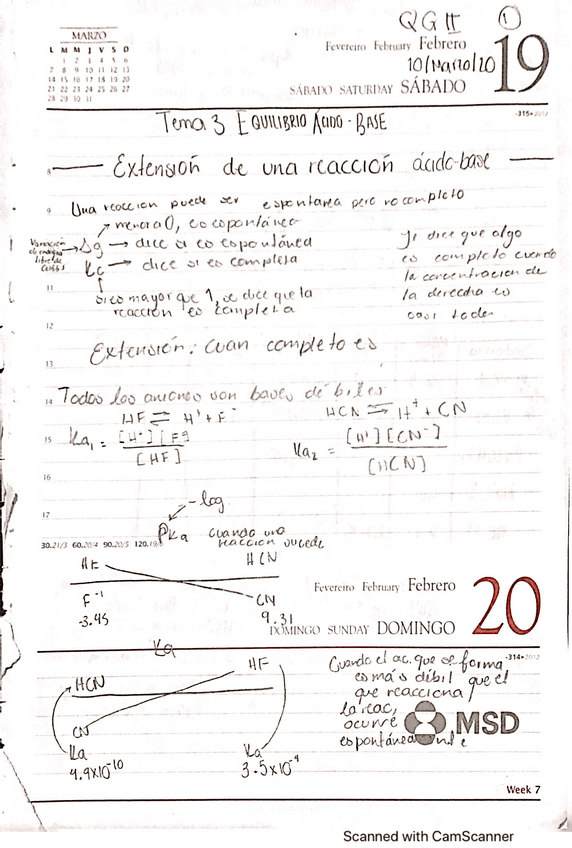 QG II 1
MARZO
L M M J V S D
1 2 3 4 5 6
7 8 9 10 11 12 13
14 15 16 17 18 19 20
21 22 23 24 25 26 27
28 29 30 31
Fevereiro February Febrero
10/Marzo/20
SÁBADO SATURDAY SÁBADO
19
-315•2012
Tema 3 EQUILIBRIO ÁCIDO-BASE
8 Extensión de una reacción ácido-base
9 Una reacción puede ser espontanea pero no completo
menor a 0, es espontáneo
Variación de energía libre de Gibbs
Δg → dice si es espontánea
Kc → dice si es completa
11 si es mayor que 1, se dice que la
reacción es completa
Se dice que algo
es completo cuando
la concentración de
la derecha es
casi todo
12
Extensión: cuan completo es
13
14 Todos los aniones son bases débiles
HF ⇌ H⁺ + F⁻
HCN ⇌ H⁺ + CN
15 Ka₁ = [H⁺][F⁻] / [HF]
Ka₂ = [H⁺][CN⁻] / [HCN]
16
-log
17
PKa cuando una
reacción sucede
30.21/3 60.20/4 90.20/5 120.19/6
HF HCN
F⁻¹ CN
-3.45 9.31
Fevereiro February Febrero
20
DOMINGO SUNDAY DOMINGO
-314•2012
Ka
HCN HF
CN
Ka Ka
4.9x10⁻¹⁰ 3.5x10⁻⁴
Cuando el ac. que se forma
es más débil que el
que reacciona
la reac,
ocurre
espontáneamente
MSD
Week 7
Scanned with CamScanner